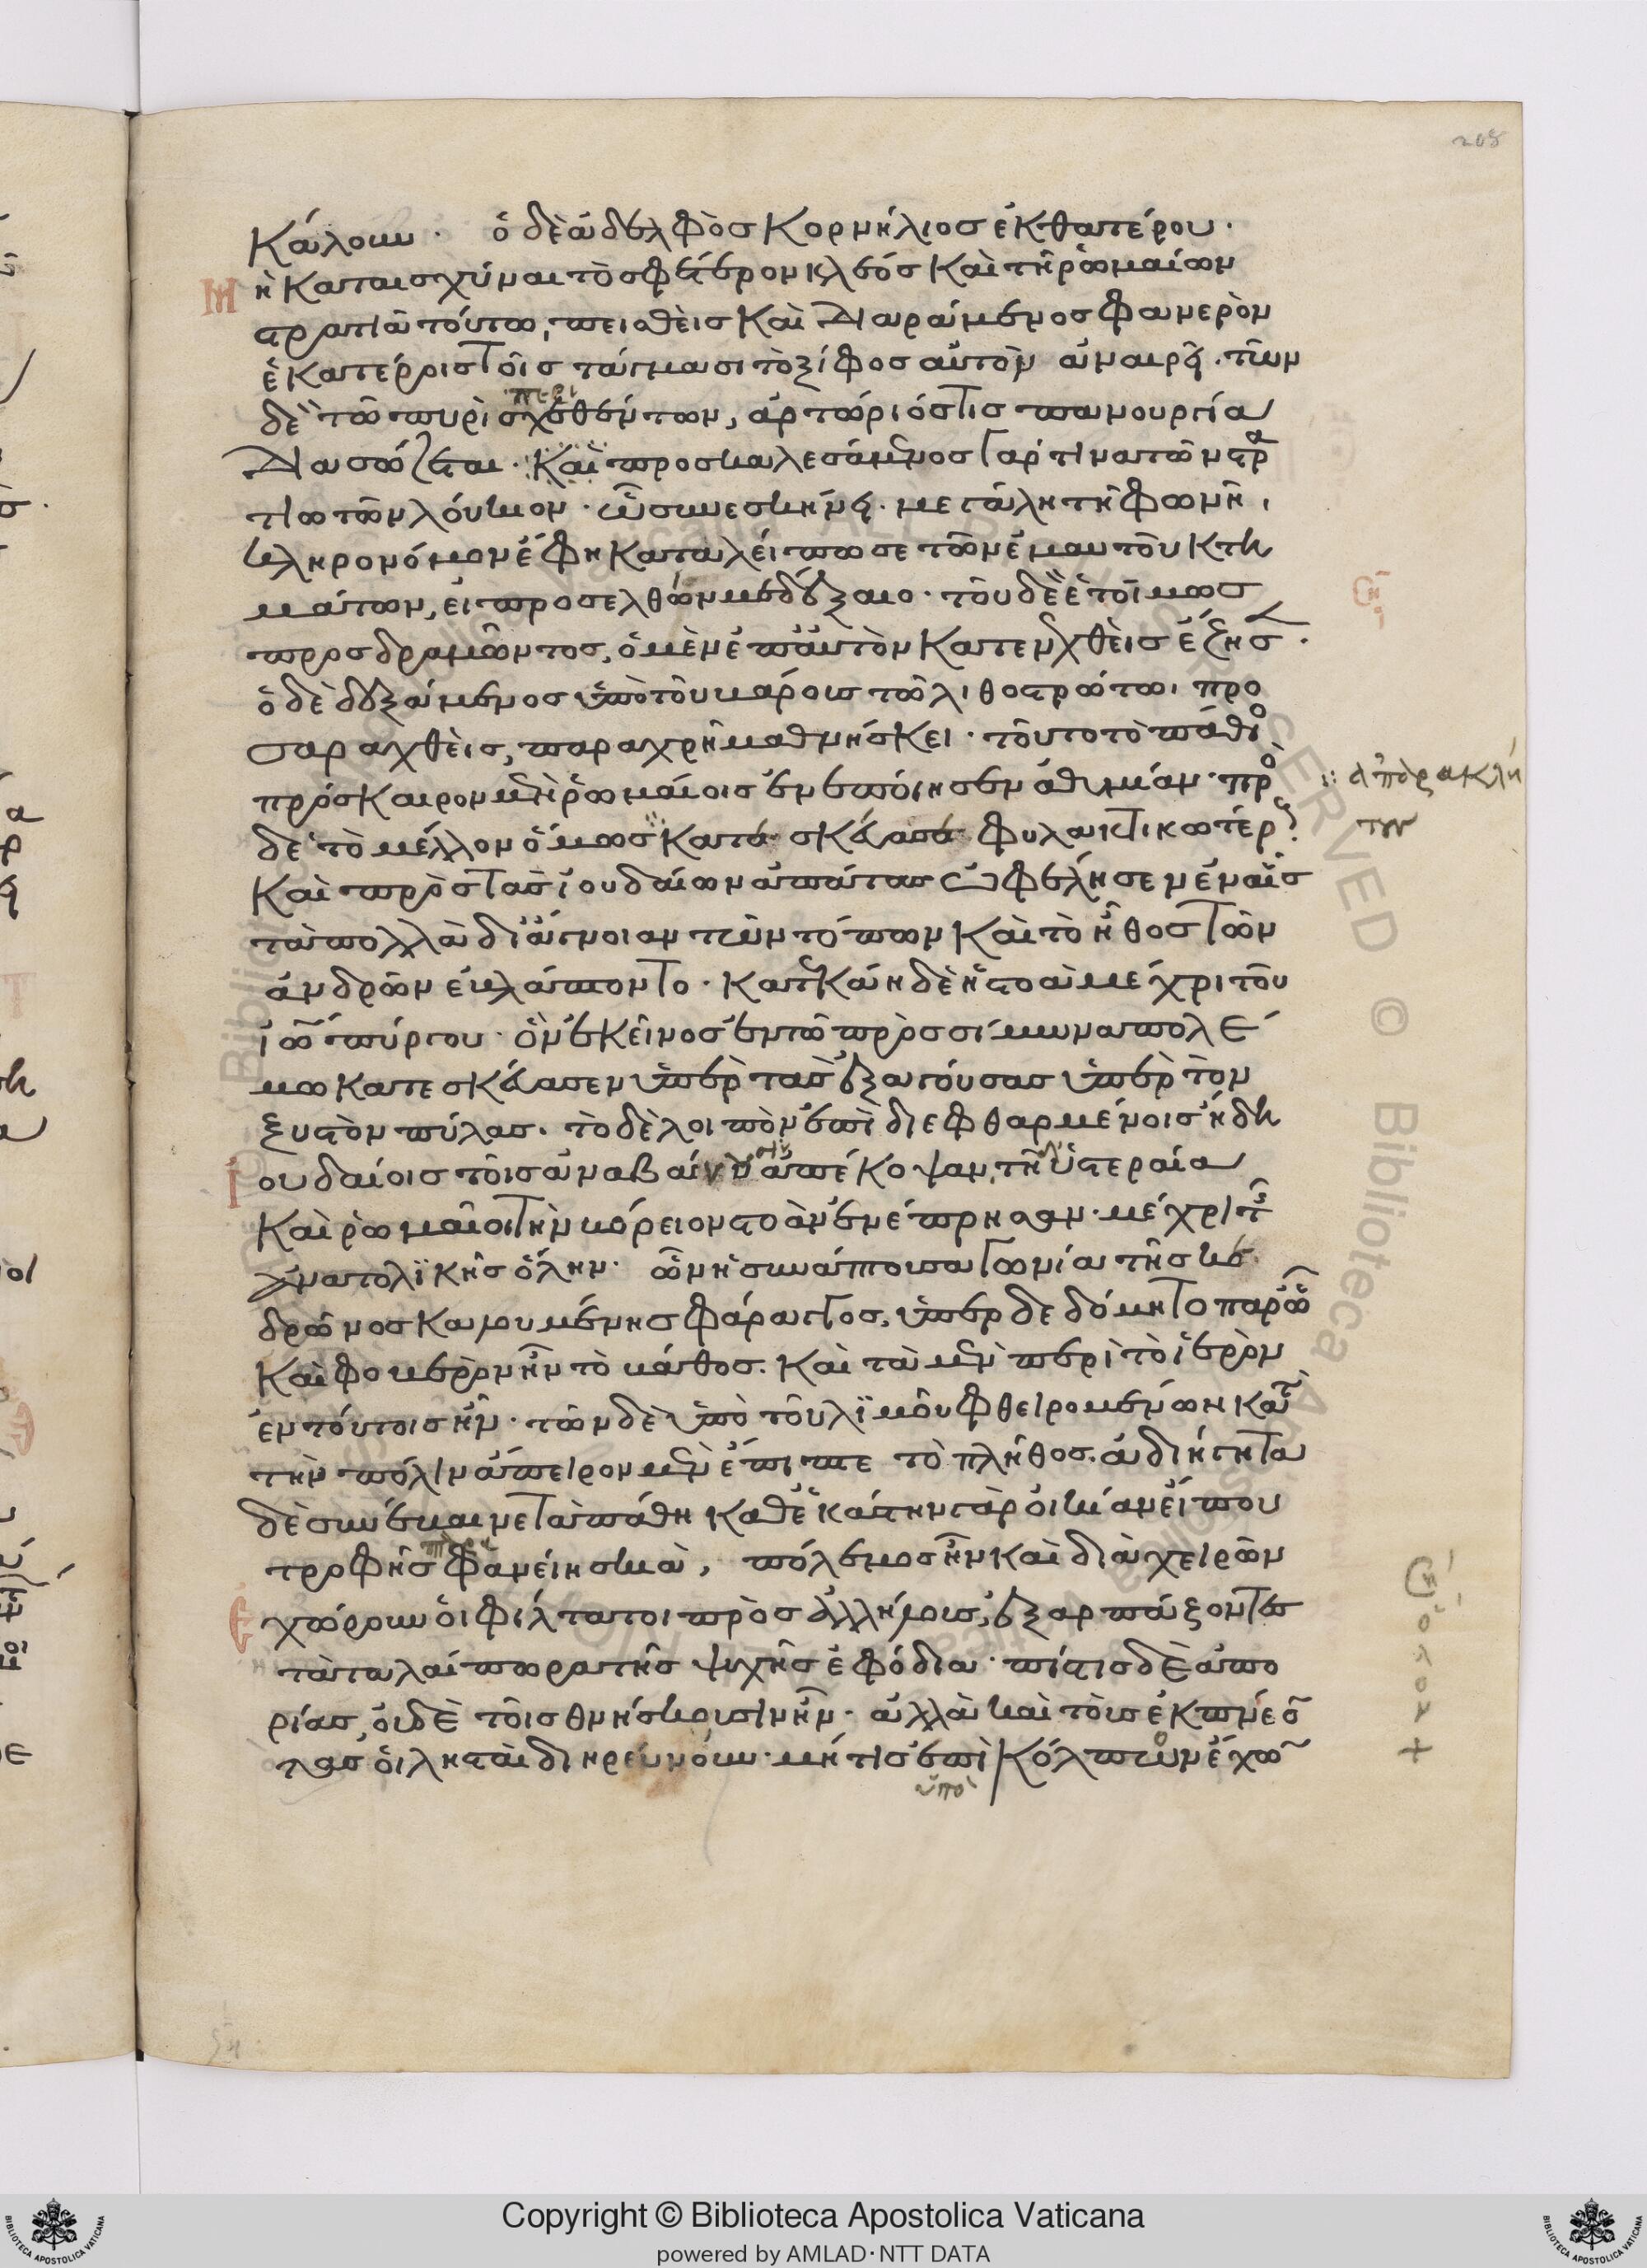 208
κάλουν· ὁ δὲ ἀδελφὸς κορνήλιος ἐκ θατέρου·
ἢ καταισχῦναι τὸ σφέτερον κλέος καὶ τὴ ῥωμαίων
στρατιᾶ τούτω, πεισθεὶς καὶ διαράμενος φανερὸν
ἑκατέροις τοῖς τάγμασι τὸ ξίφος αὑτὸν ἀναιρεῖ· τῶν
δὲ τῶ πυρὶ σχεθέντων, ἀρτώριός τις πανουργία
διασώζεται· καὶ προσκαλεσάμενος γάρ τινα τῶν στρα
τιωτῶν λούκιον· ὧ συνεσκήνει· μεγάλη τῆ φωνῆ,
κληρονόμον ἔφη καταλείπω σε τῶν ἐμαυτοῦ κτη
μάτων, εἰ προσελθών με δέξαιο· τοῦ δὲ ἑτοίμως
προσδραμόντος, ὁ μὲν ἐπ' αὐτὸν κατενχθεὶς ἔζησ·
ὁ δὲ δεξάμενος ὑπὸ τοῦ βάρους τῶ λιθοστρώτωι προ
σαραχθεὶς, παραχρῆμα θνήσκει· τοῦτο τὸ πάθο
πρόσκαιρον μὲν ῥωμαίοις ἐνεποίησεν ἀθυμίαν· πρὸ
:: ἀπαρακλή
δὲ τὸ μέλλον ὅμως κατὰ σκεύασε φυλακτικωτέρ
τους
καὶ πρὸς τὰς ἰουδαίων ἀπάτας ὠφέλησεν ἐν αἷς
τὰ πολλὰ δι' ἄγνοιαν τῶν τόπων καὶ τὸ ἦθος τῶν
ἀνδρῶν ἐβλάπτοντο· κατεκάη δὲ ἡ στοὰ μέχρι τοῦ
ἰω πύργου· ὃν ἐκεῖνος ἐν τῶ πρὸς σίμωνα πολέ
μω κατεσκεύασεν ὑπὲρ τὰς ἐξαγούσας ὑπὲρ τὸν
ξυστὸν πύλας· τὸ δὲ λοιπὸν ἐπὶ διεφθαρμένοις ἤδη
ἰουδαῖοις τοῖς ἀναβαίν ἀπέκοψαν, τῆ ὑστεραία
καὶ ῥωμαῖοι τὴν βόρειον στοὰν ἐνέπρησαν· μέχρι τῆς
ἀνατολικῆς ὅλην· ὧν ἡ συνάπτουσα γωνία τῆς κε
δρῶνος καλουμένης φάραγγος, ὑπερδεδόμητο παρ' ὃ
καὶ φοβερὸν ἦν τὸ βάθος. καὶ τὰ μὲν περὶ τὸ ἱερὸν
ἐν τούτοις ἦν· τῶν δὲ ὑπὸ τοῦ λιμοῦ φθειρομένων κατὰ
τὴν πόλιν ἄπειρον μὲν ἔπιπτε τὸ πλῆθος. ἀδιήγητα
δὲ συνέβαινε τὰ πάθη καθ' ἑκάστην γὰρ οἰκίαν εἴ που
τροφῆς φανείη σκιὰ, πόλεμος ἦν καὶ διὰ χειρῶν
ἐχώρουν οἱ φίλτατοι πρὸς ἀλλήλους, ἐξαρπάζοντες
τὰ ταλαίπωρα τῆς ψυχῆς ἐφόδια· πίστις δὲ ἀπο
ρίας, οὐδὲ τοῖς θνήσκουσιν ἦν· ἀλλὰ καὶ τοὺς ἐκπνέο
τας οἱ λησταὶ διηρεύνουν· μή τις ἐπὶ κόλπων ἔχω
ὑπὸ